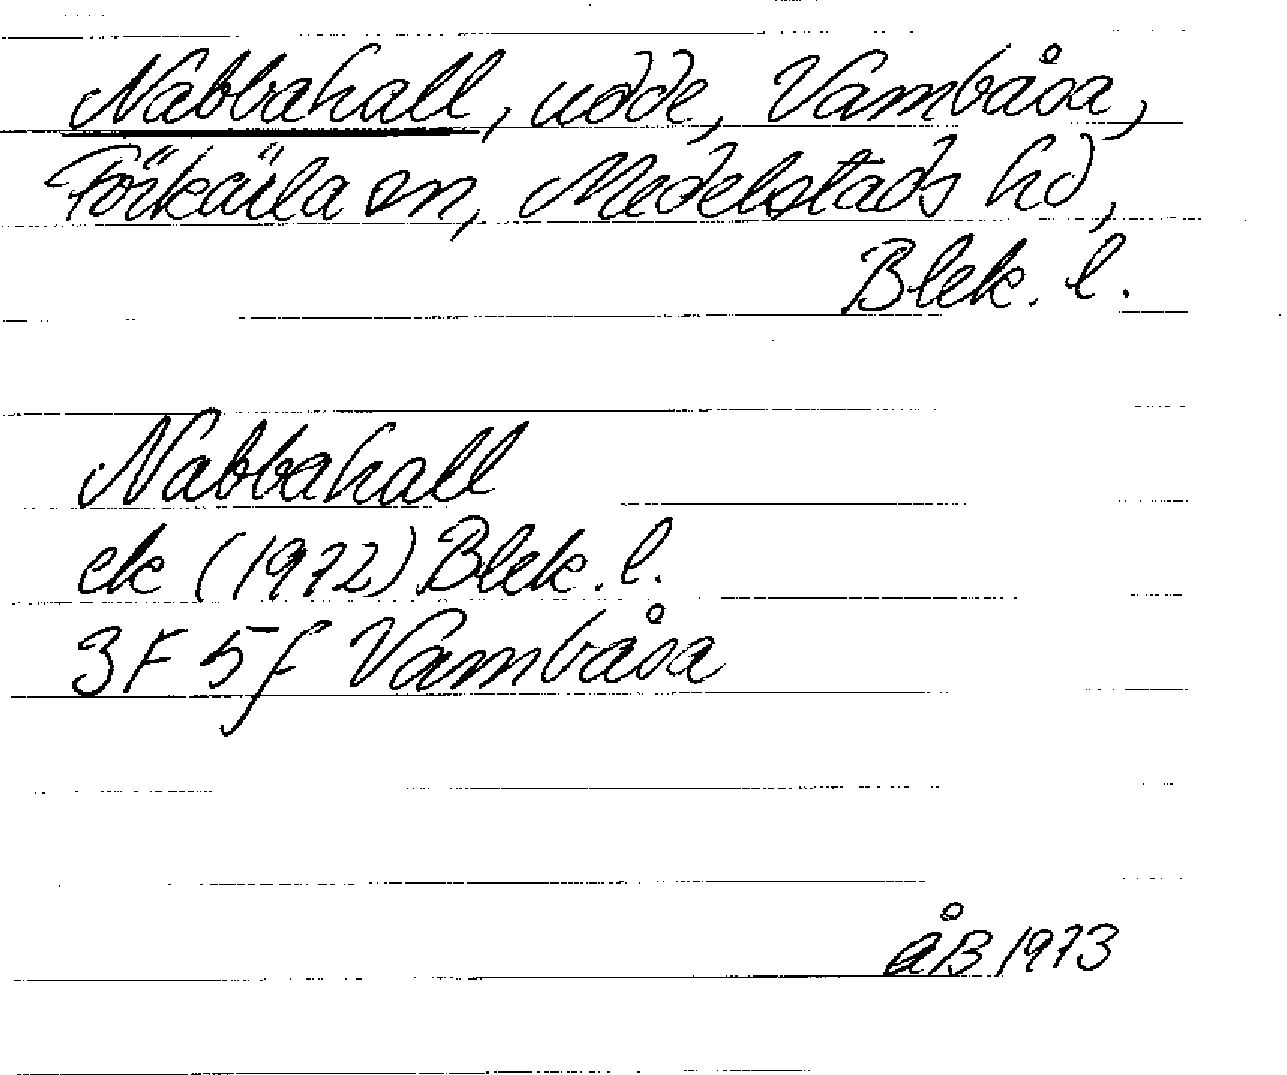 Nabbahall, udde, Vambåsa,
Förkärla sn, Medelstads hd,
Blek. l.
Nabbahall
ek (1972) Blek. l.
3F 5f Vambåsa
åB 1973